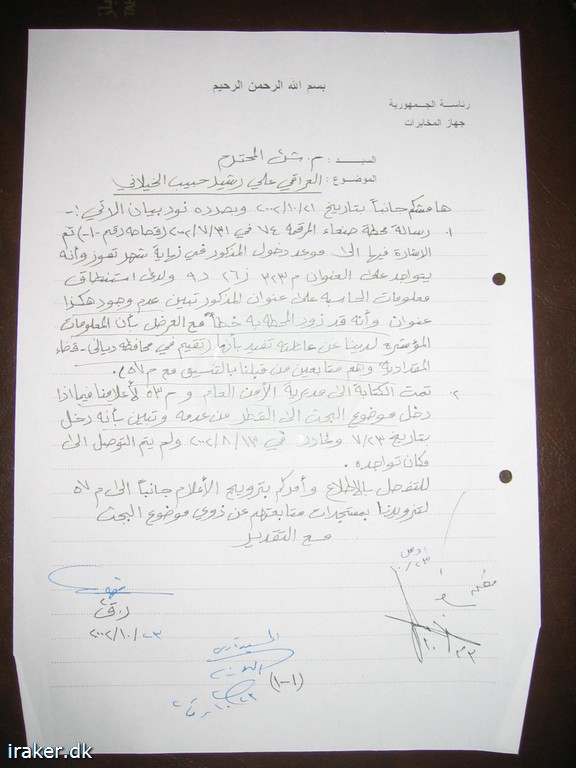 بسم الله الرحمن الرحيم
رئاسة الجمهورية
جهاز المخابرات
السيد : م. ش المحترم
الموضوع : العراقي علي رشيد حبيب الخيلاني
هامشكم جانباً بتاريخ ٢٠٠٢/١٠/٢١ وبصدده نود بيان الآتي :-
١. رسالة محطة صنعاء المرقمة ٧٤ في ٢٠٠٢/٧/٣١ (قصاصه رقم -١-) تم
الاشارة فيها الى موعد دخول المذكور في نهاية شهر تموز وأنه
يتواجد على العنوان م ٣٢٣ ز ٢٦ د ٩ ولدى استنطاق
معلومات الحاسبة على عنوان المذكور تبين عدم وجود هكذا
عنوان وأنه قد زود المحطة به خطأ مع العرض بأن المعلومات
المؤشرة لدينا عن عائلته تفيد بأنها تقيم في محافظة ديالى - قضاء
المقدادية وهم متابعين من قبلنا بالتنسيق مع م ٥٧).
٢. تمت الكتابة الى مديرية الأمن العام و م ٥٣ لأعلامنا فيما اذا
دخل موضوع البحث الى القطر من عدمه وتبين بأنه دخل
بتاريخ ٧/٢٣ وغادر في ٢٠٠٢/٨/١٣ ولم يتم التوصل الى
مكان تواجده .
للتفضل بالإطلاع وأمركم بترويج الأعلام جانباً الى م ٥٧
لتزويدنا بمستجدات متابعتهم عن ذوي موضوع البحث
مع التقدير
٢٠٠٢/١٠/٢٣
(١-١)
iraker.dk